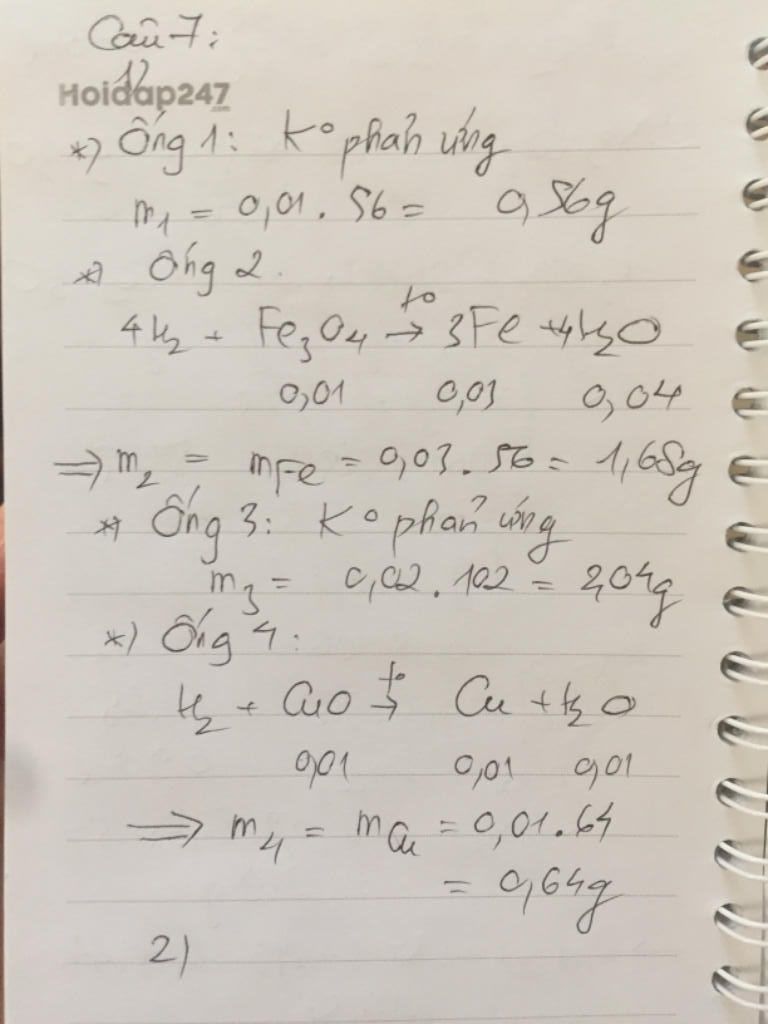 Câu 7:
1)
Hoidap247.com
*) Ống 1: K° phản ứng
m₁ = 0,01 . 56 = 0,56g
*) Ống 2.
4H₂ + Fe₃O₄ →(t°) 3Fe + 4H₂O
0,01 0,03 0,04
=> m₂ = mFe = 0,03 . 56 = 1,68g
*) Ống 3: K° phản ứng
m₃ = 0,02 . 102 = 2,04g
*) Ống 4:
H₂ + CuO →(t°) Cu + H₂O
0,01 0,01 0,01
=> m₄ = mCu = 0,01 . 64
= 0,64g
2)